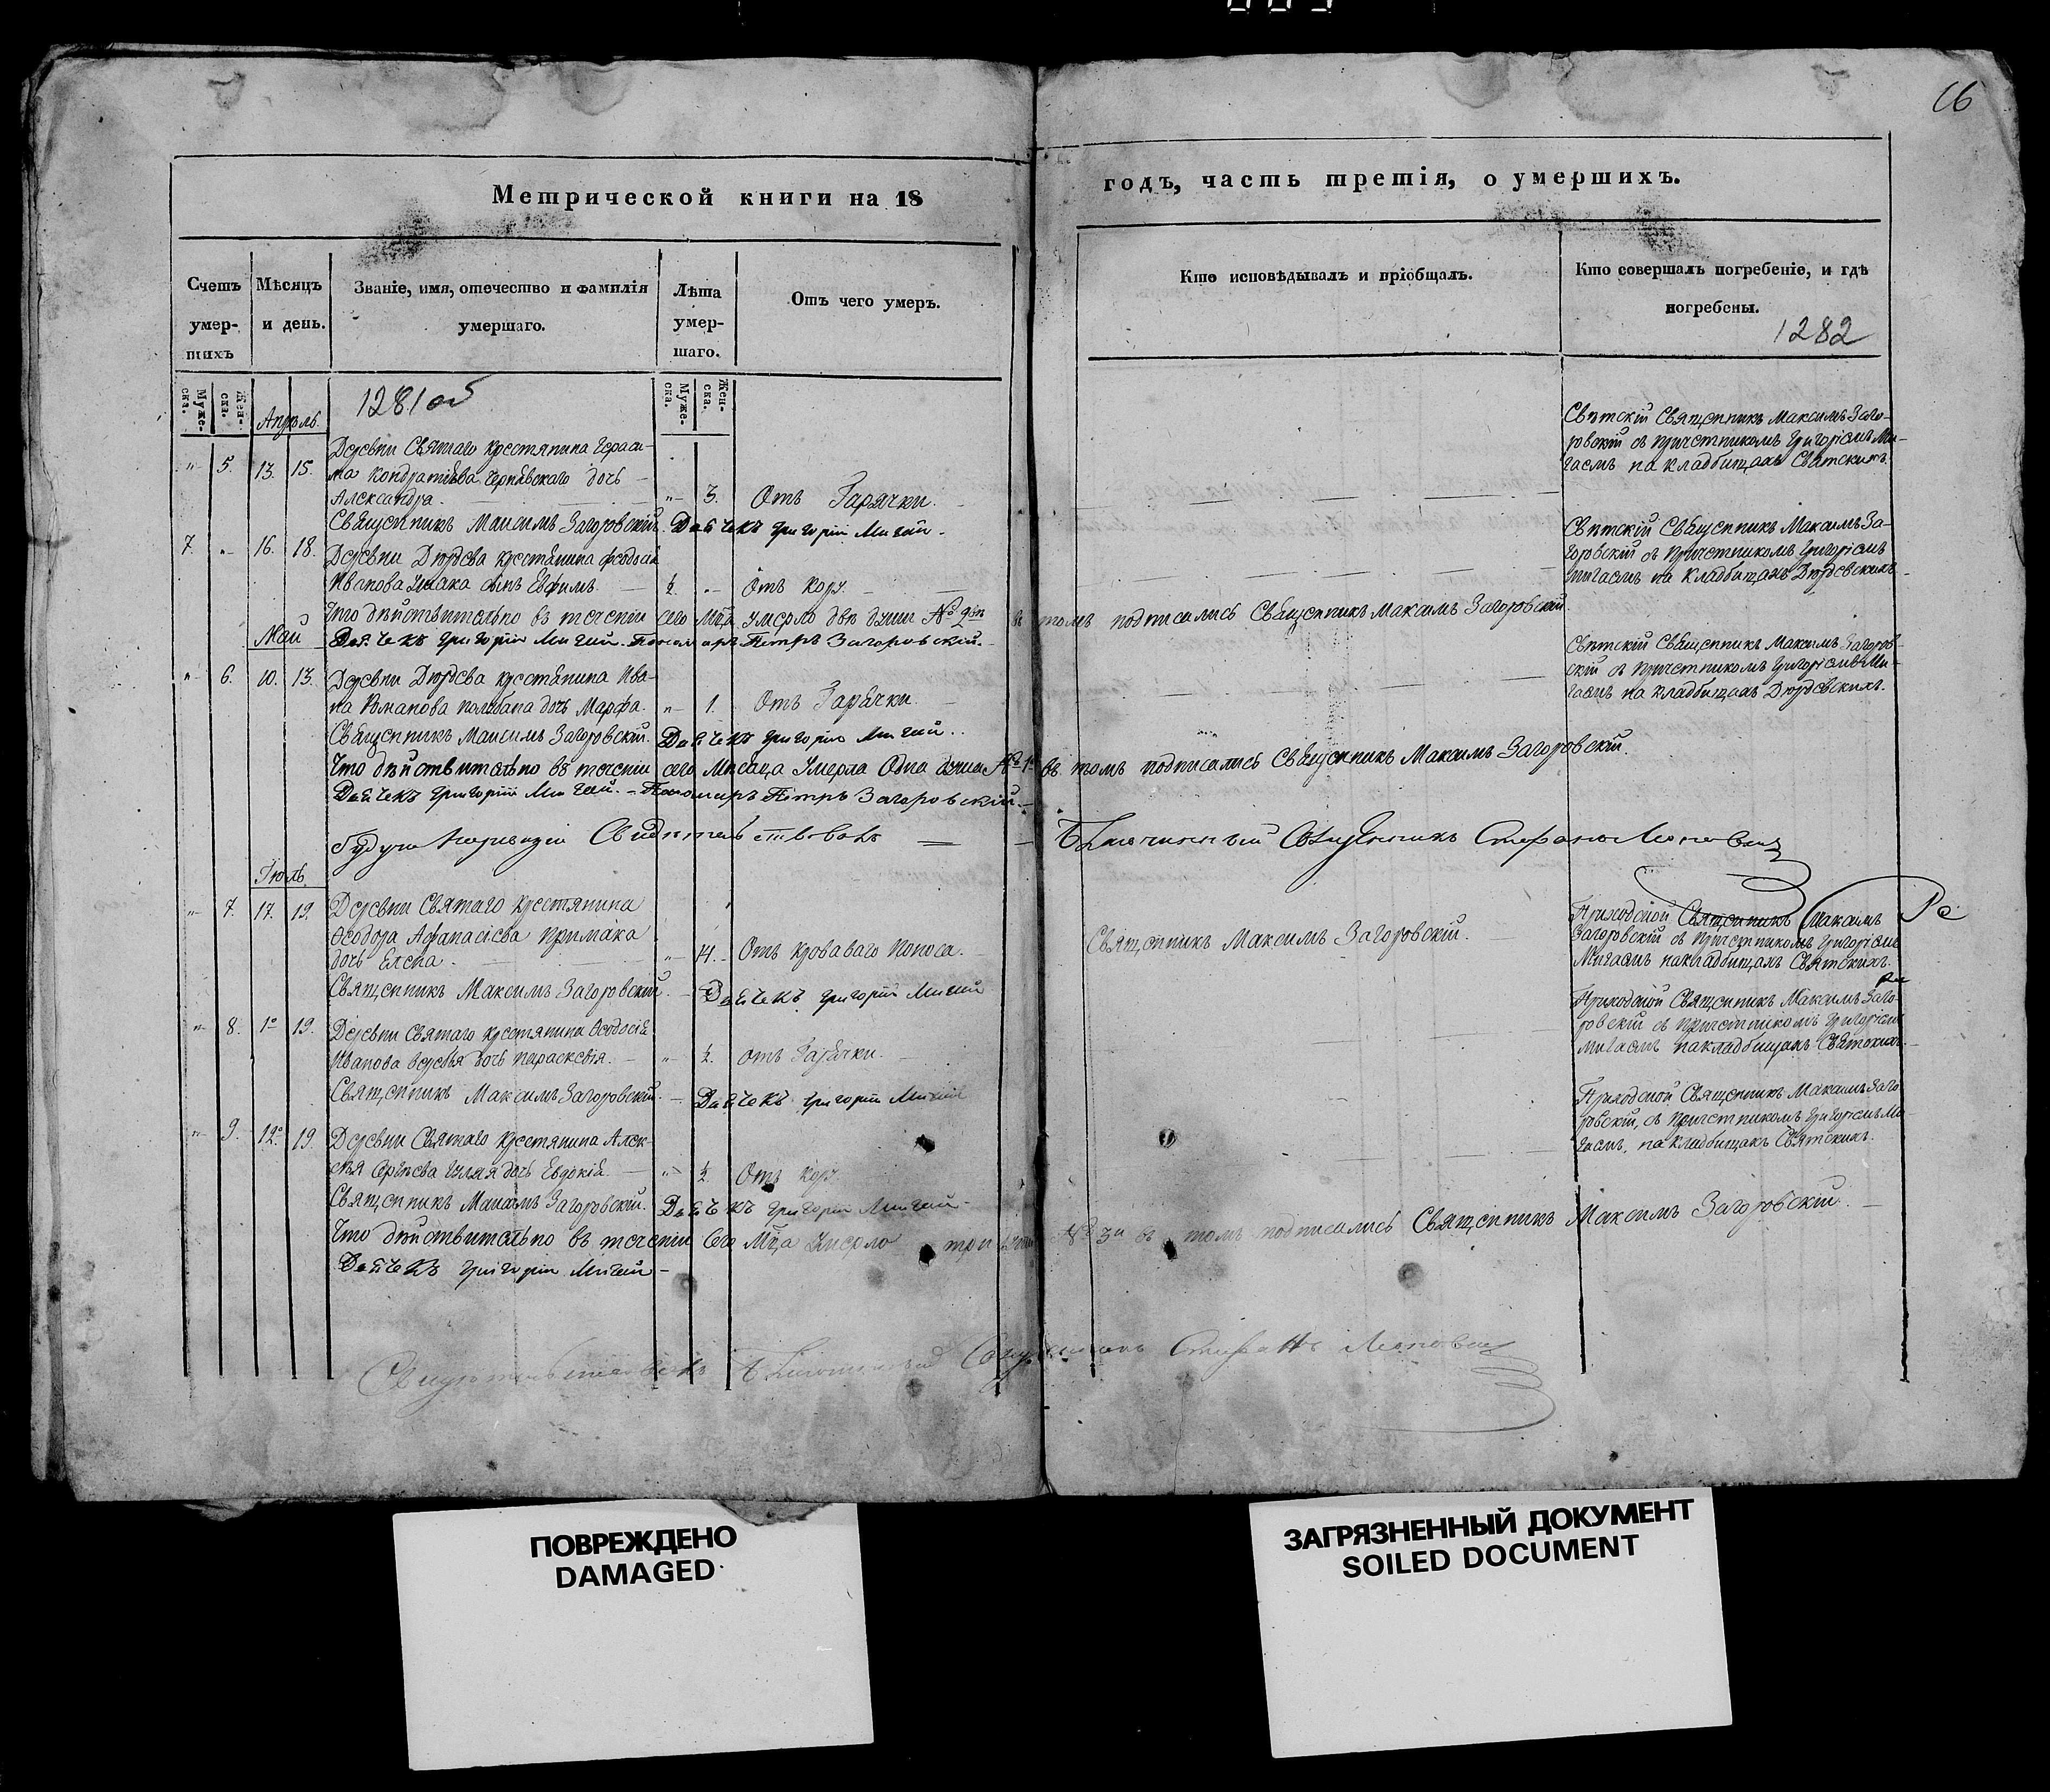 66
Метрической книги на 18
годъ, часть третія, о умершихъ.
Счетъ умер-шихъ
Мѣсяцъ и день.
Званіе, имя, отечество и фамилія умершаго.
Лѣта умер-шаго.
Отъ чего умеръ.
Кто исповѣдывалъ и пріобщалъ.
Кто совершалъ погребеніе, и гдѣ погребены.
1282
Муже-ска. Жен-ска.
1281 об
Муже-ска. Жен-ска.
Апрѣль.
Деревни Святаго крестянина Гераси-
5. 13. 15. ма Кондратіева Чернѣвскаго дочь
Александра. 3. Отъ Гарячки.
Свѣтскій Священникъ Максимъ Заго-
ровскій съ причетникомъ Григоріемъ Ми-
гаемъ на кладбищахъ Святскихъ.
Священникъ Максимъ Загоровскій. Дячекъ Григорій Мигай.
7. 16. 18. Деревни Дюрдева крестянина Феодосія
Иванова сынъ Евфимъ ½ Отъ кору.
Свѣтскій Священникъ Максимъ За-
горовскій съ причетникомъ Григоріемъ
Мигаемъ на кладбищахъ Дюрдевскихъ
Что дѣйствительно въ теченіи сего Мца умерло двѣ души № 2ве въ томъ подписались Священникъ Максимъ Загоровскій.
Дячекъ Григорій Мигай. Пономаръ Петръ Загоровскій.
Май
6. 10. 13. Деревни Дюрдева крестянина Ива-
на Романова дочь Марфа. 1. Отъ Гарячки.
Свѣтскій Священникъ Максимъ Загоров-
скій съ причетникомъ Григоріемъ Ми-
гаемъ на кладбищахъ Дюрдевскихъ.
Священникъ Максимъ Загоровскій. Дячекъ Григорій Мигай.
Что дѣйствительно въ теченіи сего Мѣсяца Умерла Одна душа № 1 въ томъ подписались Священникъ Максимъ Загоровскій.
Дячекъ Григорій Мигай. Пономаръ Петръ Загоровскій.
Свидѣтельствовалъ Благочинный Священникъ Стефанъ
Іюль.
7. 17. 19. Деревни Святаго крестянина
Ѳеодора Афанасіева Примака
дочь Елена. 14. Отъ кроваваго поноса.
Священникъ Максимъ Загоровскій.
Приходской Священникъ Максимъ
Загоровскій съ причетникомъ Григоріемъ
Мигаемъ на кладбищахъ Святскихъ.
Священникъ Максимъ Загоровскій. Дячекъ Григорій Мигай
8. 19. Деревни Святаго крестянина Ѳеодосія
Иванова дочь Параскевія. ½. отъ Гарячки.
Приходской Священникъ Максимъ Заго-
ровскій съ причетникомъ Григоріемъ
Мигаемъ на кладбищахъ Святскихъ.
Священникъ Максимъ Загоровскій. Дячокъ Григорій Мигай
9. 12. 19. Деревни Святаго крестянина Алек-
сѣя Сергѣева дочь Евдокія ½ Отъ кору.
Приходской Священникъ Максимъ Заго-
ровскій, съ причетникомъ Григоріемъ Ми-
гаемъ, на кладбищахъ Святскихъ.
Священникъ Максимъ Загоровскій. Дячекъ Григорій Мигай
Что дѣйствительно въ теченіи сего Мца умерло три души № 3и въ томъ подписались Священникъ Максимъ Загоровскій.
Дячекъ Григорій Мигай
Свидѣтельствовалъ Благочинный Священникъ Стефанъ
ПОВРЕЖДЕНО
DAMAGED
ЗАГРЯЗНЕННЫЙ ДОКУМЕНТ
SOILED DOCUMENT